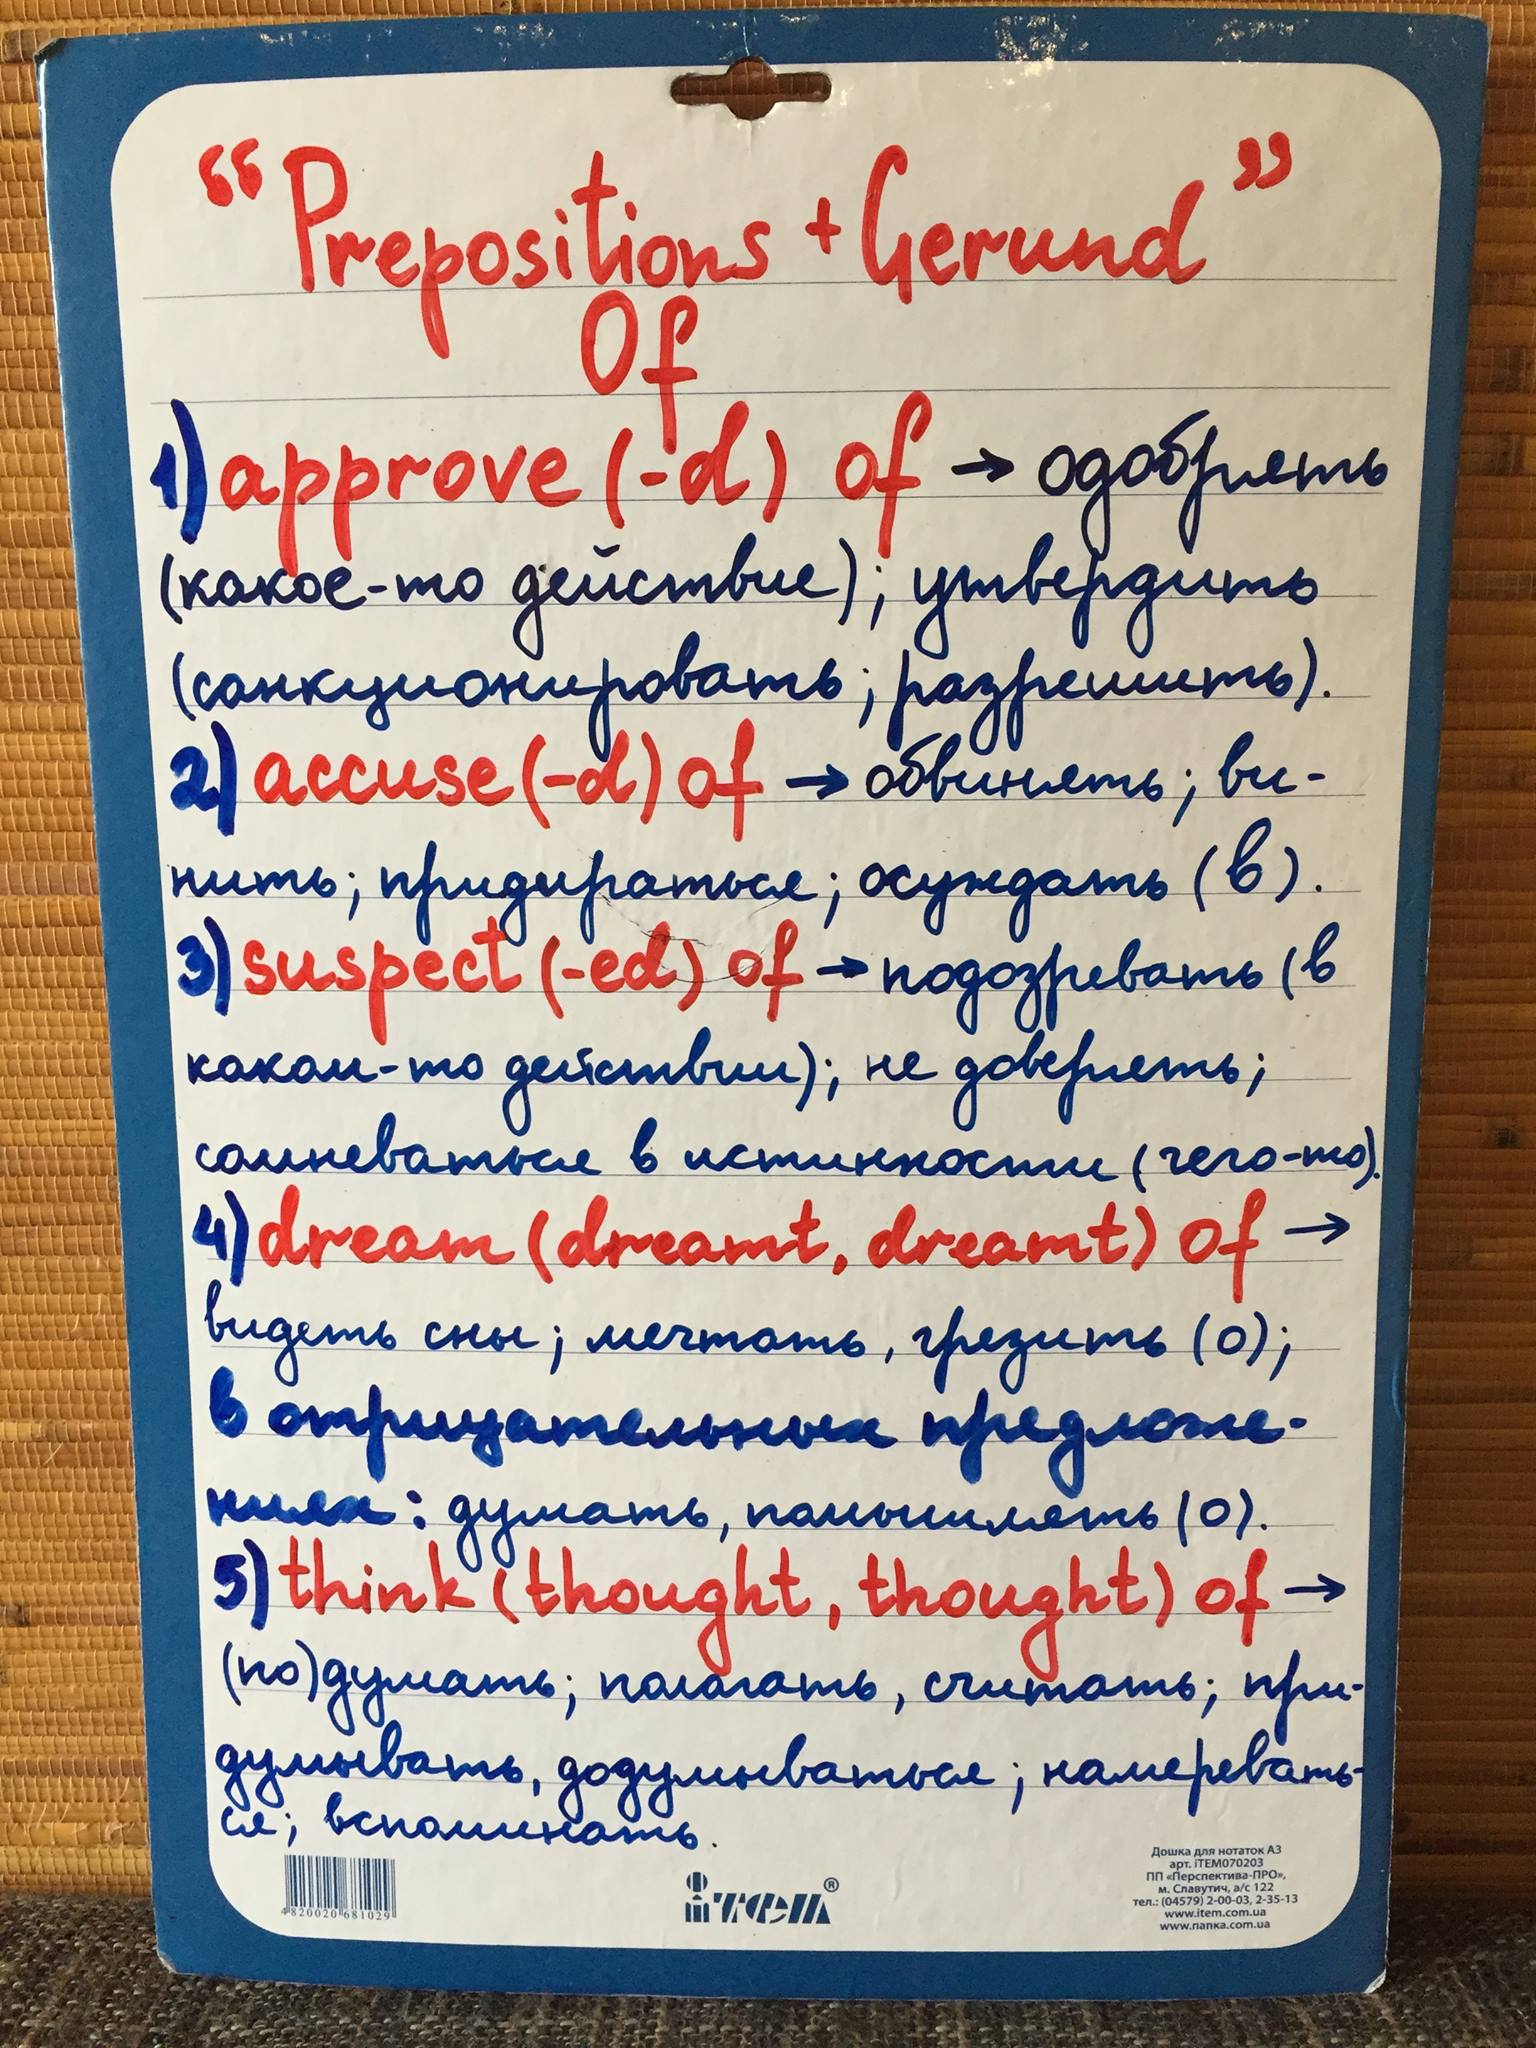 “Prepositions + Gerund”
Of
1) approve (-d) of → одобрять
(какое-то действие); утвердить
(санкционировать; разрешить).
2) accuse (-d) of → обвинять; ви-
нить; придираться; осуждать (в).
3) suspect (-ed) of → подозревать (в
каком-то действии); не доверять;
сомневаться в истинности (чего-то).
4) dream (dreamt, dreamt) of →
видеть сны; мечтать, грезить (о);
в отрицательных предложе-
ниях: думать, помышлять (о).
5) think (thought, thought) of →
(по)думать; полагать, считать; при-
думывать, додумываться; намеревать-
ся; вспоминать.
4820020681029
iтем®
Дошка для нотаток А3
арт. iTEM070203
ПП «Перспектива-ПРО»,
м. Славутич, а/с 122
тел.: (04579) 2-00-03, 2-35-13
www.item.com.ua
www.папка.com.ua